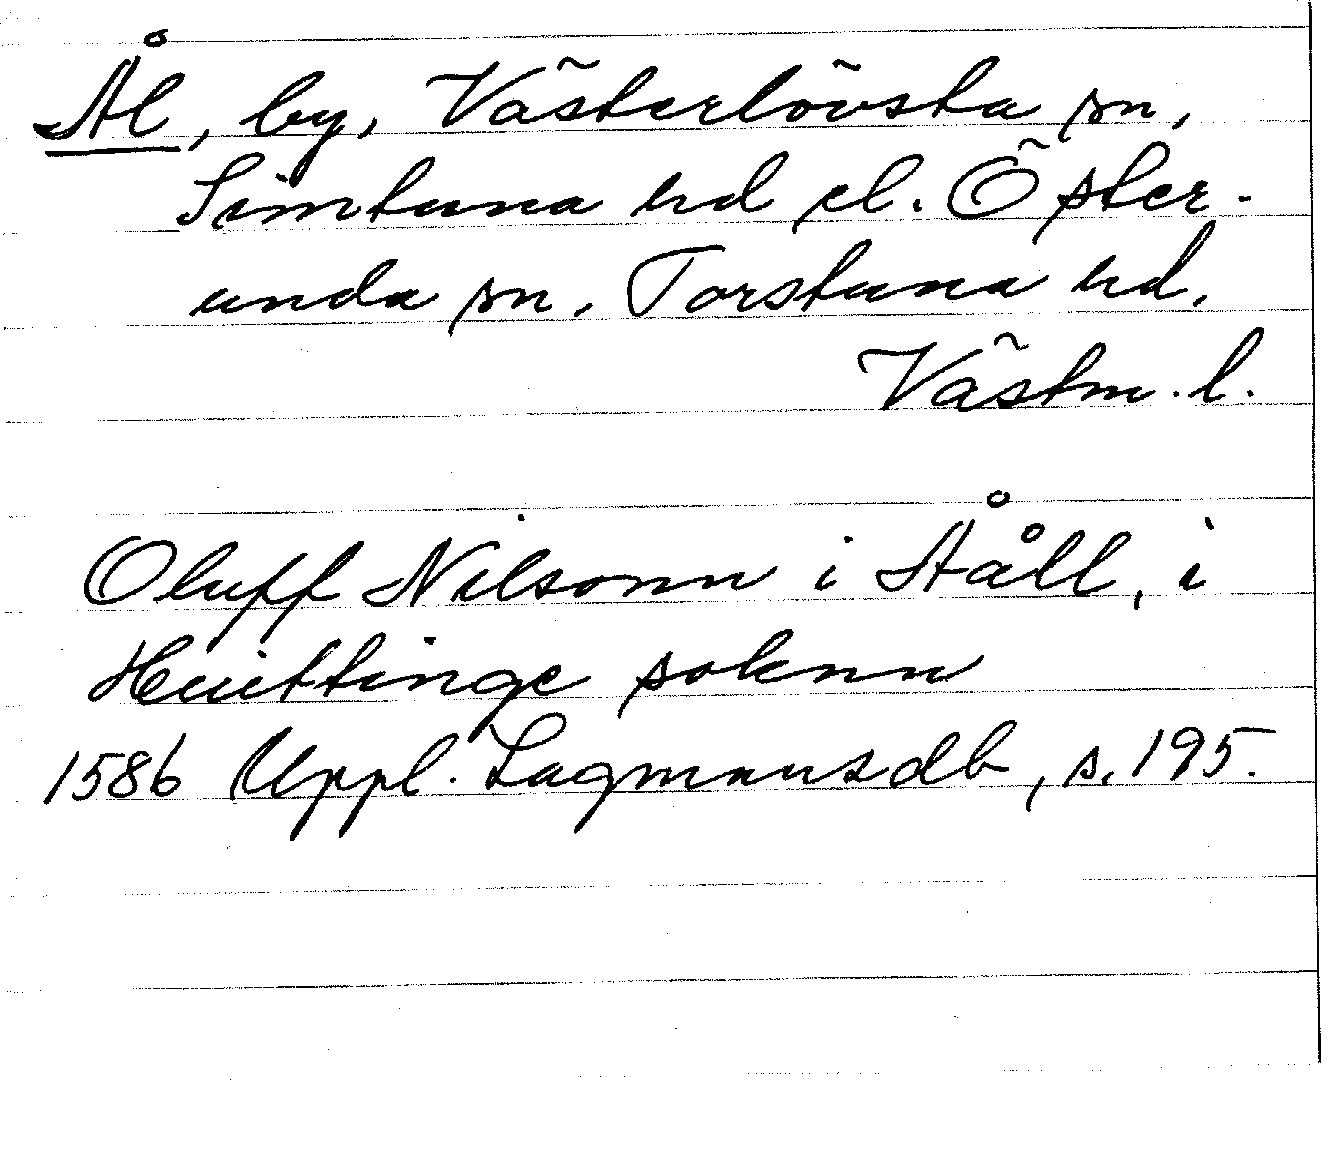 Ål, by, Västerlövsta sn,
Simtuna hd el. Öster-
unda sn, Torstuna hd,
Västm. l.
Oluff Nilsonn i Åål̊l, i
Huittinge soknn
1586 Uppl. Lagmansdb, s. 195.